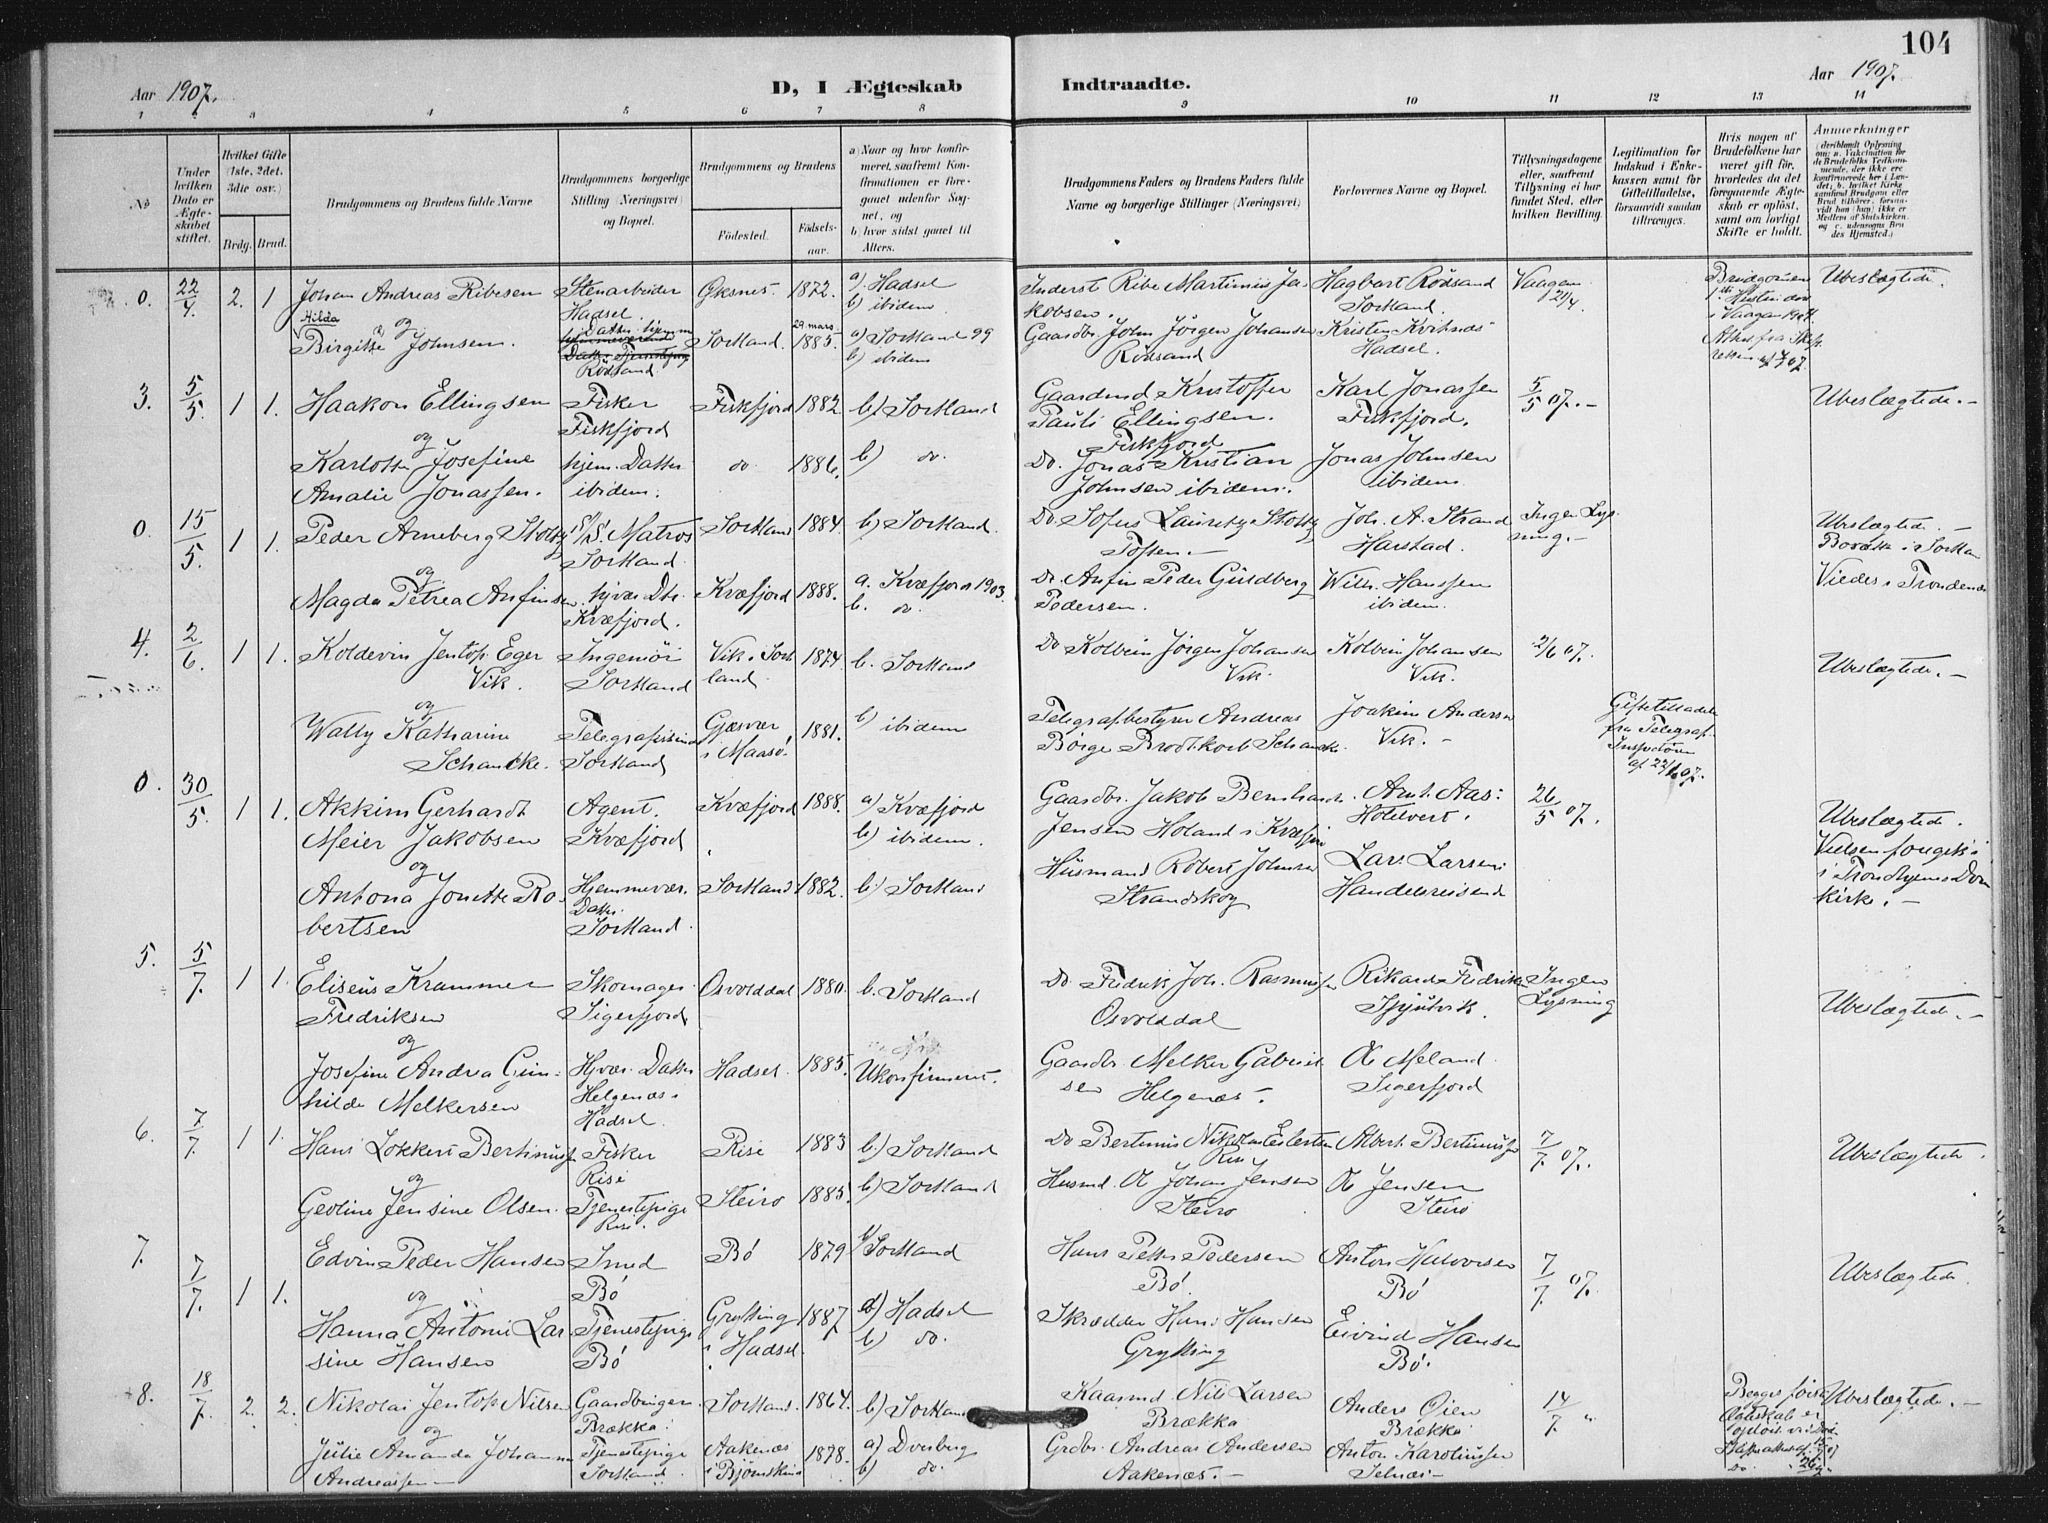 104
Aar 1907.
D, I Ægteskab
Indtraadte.
Aar 1907.
1 2 3 4 5 6 7 8 9 10 11 12 13 14
No
Under hvilken Dato er Ægteskabet stiftet.
Hvilket Gifte (1ste, 2det, 3die osv.)
Brdg. Brud.
Brudgommens og Brudens fulde Navne
Brudgommens borgerlige Stilling (Næringsvei) og Bopæl.
Brudgommens og Brudens
Fødested.
Fødselsaar.
a) Naar og hvor konfirmeret, saafremt Konfirmationen er foregaaet udenfor Sognet, og
b hvor sidst gaaet til Alters.
Brudgommens Faders og Brudens Faders fulde Navne og borgerlige Stillinger (Næringsvei)
Forlovernes Navne og Bopæl.
Tillysningsdagene eller, saafremt Tillysning ei har fundet Sted, efter hvilken Bevilling
Legitimation for Indskud i Enkekassen samt for Giftetilladelse, forsaavidt saadan tiltrænges.
Hvis nogen af Brudefolkene har været gift før, hvorledes da det foregaaende Ægteskab er opløst, samt om lovligt Skifte er holdt.
Anmerkninger
(deriblandt Oplysning om: a. Vakcination for de Brudefolks Vedkommende, der ikke ere konfirmerede her i Landet; b. hvilket Kirkesamfund Brudgom eller Brud tilhører, forsaavidt han (hun) ikke er Medlem af Statskirken, og c. udensogns Brudes Hjemsted.)
0. 22/4 2. 1 Johan Andreas Ribesen Stenarbeider Hadsel. Øksnes 1872. a) Hadsel b) ibidem Inderst Ribe Martinius Jakobsen. Hagbart Rødsand Sortland. Vaagan 21/4 Ubeslægtede.
og
Hilda Birgitte Johnsen. Rødsand Sortland. 29 mars 1885. a) Sortland 99 b) ibidem Gaardbr. John Jørgen Johansen Rødsand Kristen Kvitnes Hadsel.
3. 5/5 1 1. Haakon Ellingsen Fisker Fiskfjord Fiskfjord 1882. b) Sortland Gaardmd Kristoffer Pauli Ellingsen. Fiskfjord Karl Jonassen Fiskfjord. 5/5 07.- Ubeslægtede.-
og
Karlotte Josefine Amalie Jonassen. hjem. Datter ibidem. do. 1886. b) do. Do. Jonas Kristian Johnsen ibidem. Jonas Johnsen ibidem.
0. 15/5. 1 1. Peder Arneberg Stoltz S/S. Matros Sortland. Sortland 1884. b) Sortland. Do. Sofus Lauretz Stoltz Joh. A. Strand Harstad. Ingen Lysning.- Ubeslægtede.-
og
Magda Petrea Anfinsen. hjvær. Dtr. Kvæfjord. Kvæfjord 1888. a. Kvæfjord 1903. b. do. Do. Anfin Peder Guldberg Pedersen. Wilh. Hanssen ibidem.
4. 2/6. 1 1. Koldevin Jentoft Eger Vik. Ingeniør Sortland Vik i Sortland 1874. b. Sortland Do Kolbein Jørgen Johansen Vik. Kolbein Johansen Vik. 2/6 07. Ubeslægtede.-
og
Wally Katharine Schancke. Sortland Gjesvær i Maasø. 1881. b) ibidem Telegrafbestyrer Andreas Børge Brodtkorb Schancke. Joakim Andersen Vik.- Giftetilladelse fra Telegraf-Inspektøren af 22/4 07.
0. 30/5. 1 1. Akkim Gerhardt Meier Jakobsen Agent. Kvæfjord Kvæfjord 1888. a) Kvæfjord b) ibidem. Gaardbr. Jakob Jensen Holand i Kvæfjord Arnt Aas: Hotelvert. 26/5 07. Ubeslægtede. i Trondhjems Domkirke.-
og
Antona Jonette Robertsen Hjemmevær. Datter. Sortland. Sortland 1882. b) Sortland Husmand Robert Johnsen Strandskog Lars Larsen Handelsreisende
5. 5/7. 1 1. Eliseus Krammer Fredriksen Skomager Sigerfjord Osvolddal 1880. b. Sortland Do Fredrik Joh. Rasmussen Osvolddal Rikard Fredriksen Ingen Lysning Ubeslægtede.-
og
Josefine Andrea Gunhilde Melkersen Hjvær. Datter Helgenæs Hadsel. Hadsel. 1885. Ukonfirmeret. Gaardbr. Melker Gabrielsen Helgenæs. O Meland Sigerfjord
6. 7/7. 1 1. Hans Lokkert Bertinusen Fisker Risø Risø 1883 b) Sortland Do Bertinus Nikolai Eilertsen Risø Albert Bertinussen 7/7. 07. Ubeslægtede.
og
Geoline Jensine Olsen. Tjenestepige Risø. Steiro 1885. b) Sortland Husmd. O Johan Jensen Steiro O Jensen Steiro
7. 7/7. 1 1. Edvin Peder Hansen Smed Bø Bø 1879 b) Sortland Hans Petter Pedersen Bø. Anton Halvorsen Bø 7/7. 07. Ubeslægtede.
og
Hanna Antonie Larsine Hansen Tjenestepige Bø Grytting i Hadsel. 1887 a) Hadsel b) do. Skrædder Hans Hansen Grytting Eivind Hansen Bø.
8. 18/7. 2. 2. Nikolai Jentoft Nilsen Gaardbruger Brækka. Sortland. 1864. b) Sortland Kaarmd. Nils Larsen Brækka Anders Øien Brækka 14/7. " Ubeslægtede.-
og
Julie Amanda Johanna Andreassen Tjenestepige Sortland Aakenæs i Bjørnskind 1878. a) Dverberg b) do. Grdbr. Andreas Andersen Aakenæs.- Anton Karolinussen Selnæs-